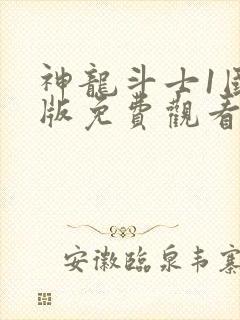 神龍斗士1国
版免費觀看
安徽臨泉韦寨